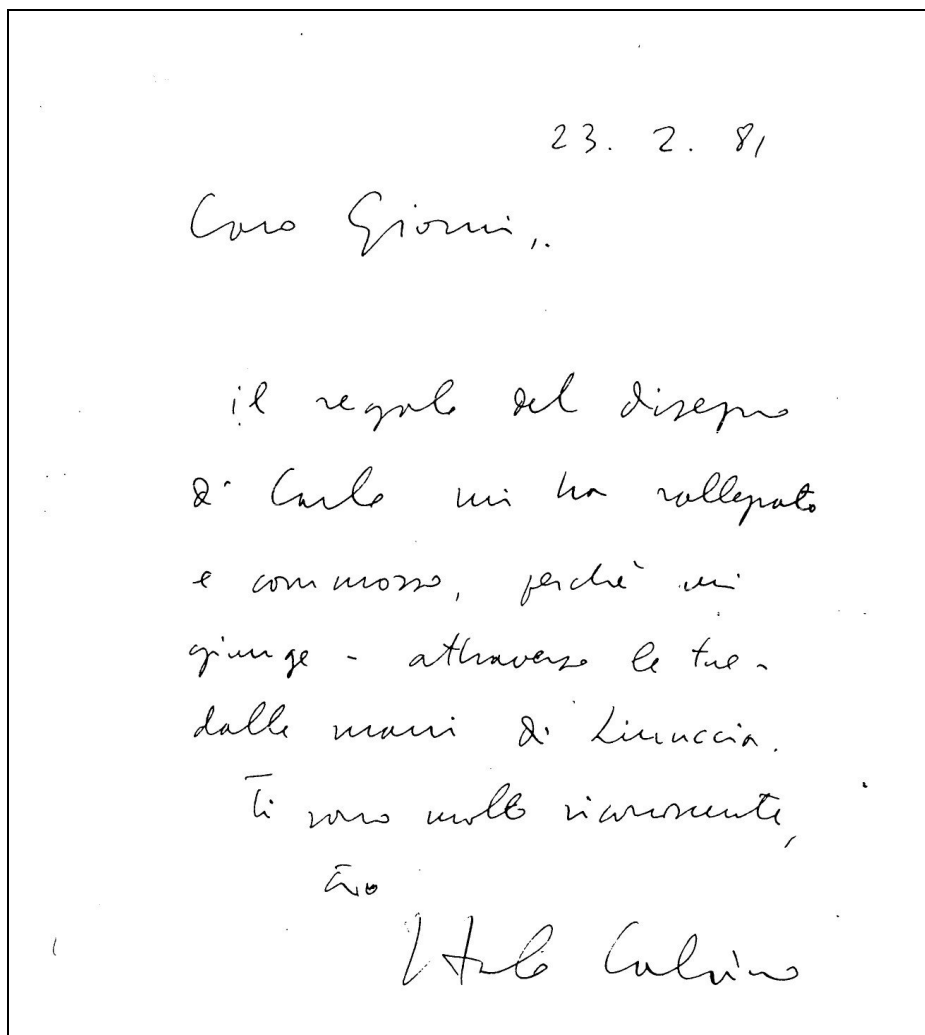 23. 2. 81
Caro Giorni,
il regalo del disegno
di Carlo mi ha rallegrato
e commosso, perché mi
giunge - attraverso le tue -
dalle mani di Linuccia.
Ti sono molto riconoscente,
tuo
Italo Calvino